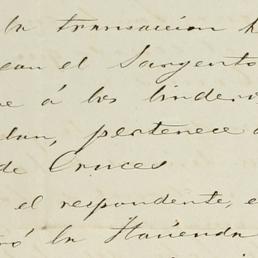 la transaccion
el Sargento
á los lindero
pertenece
de Cruces
el respondente, e
la Hacienda